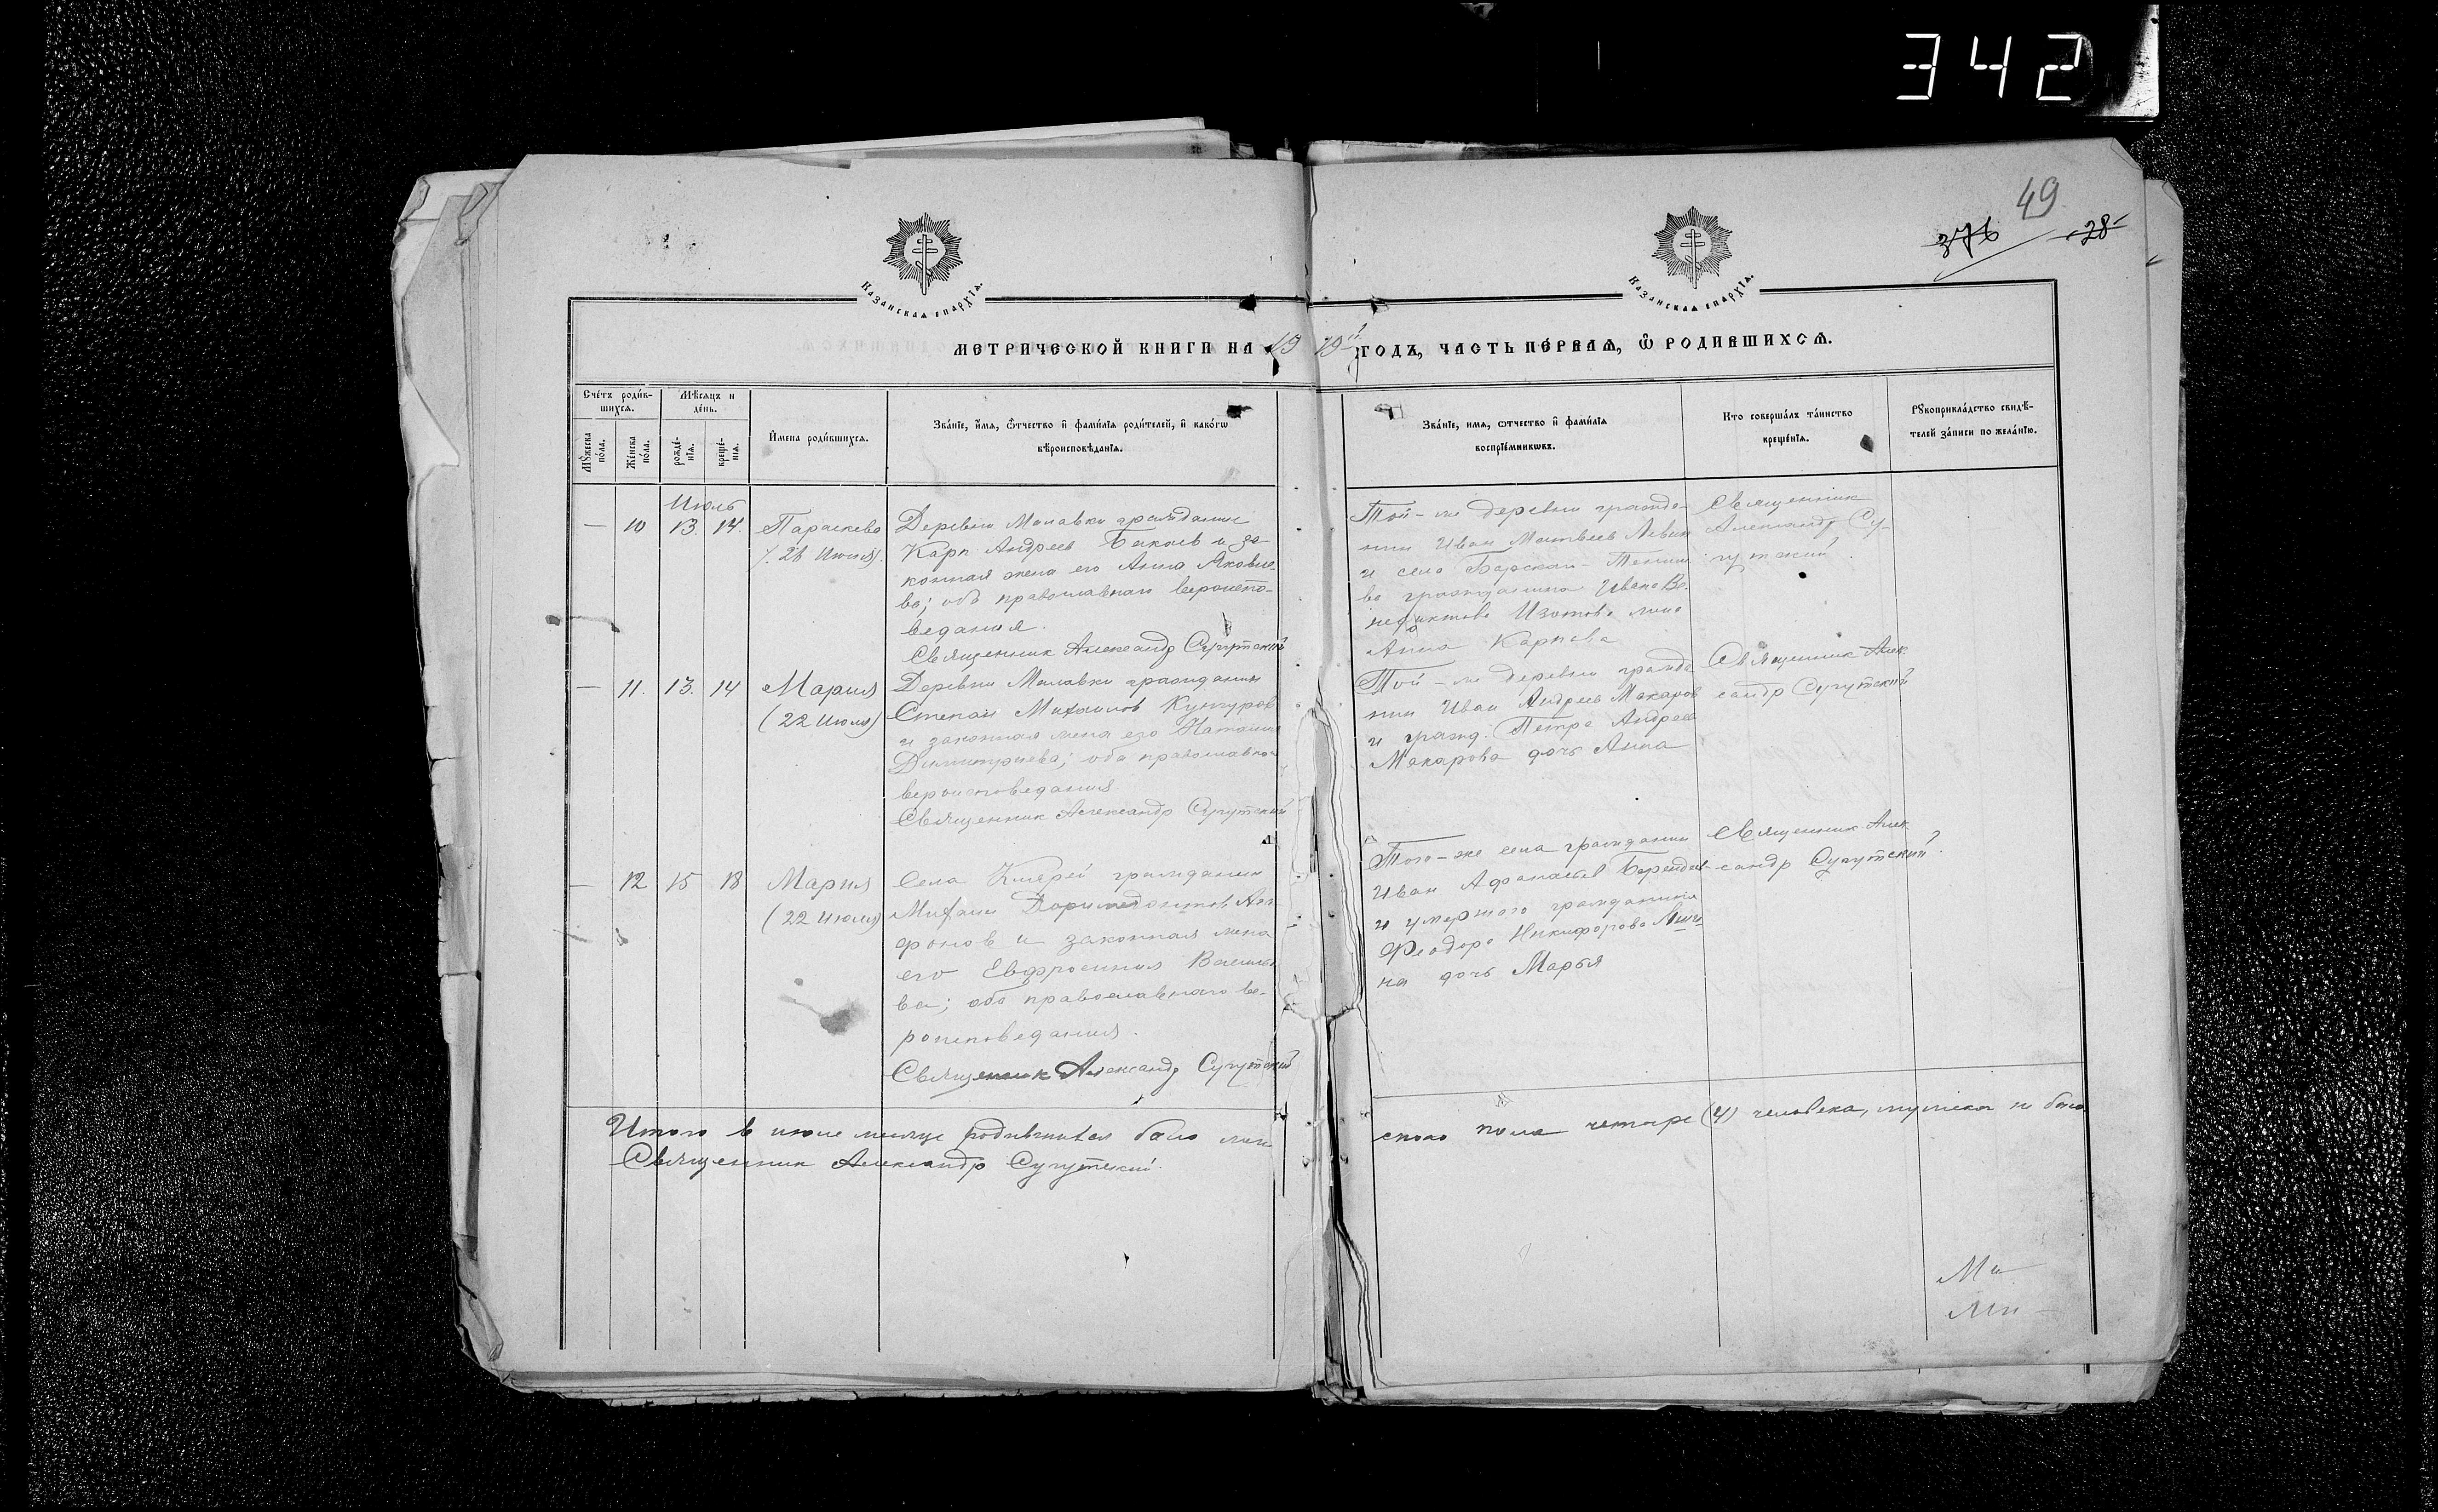 342
49
376 28
Казанская епархїа.
Казанская епархїа.
МЕТРИЧЕСКОЙ КНИГИ НА 19 19й ГОДЪ, ЧАСТЬ ПЕРВАЯ, Ѿ РОДИВШИХСѦ.
Счетъ родив-
шихся.
Мѣсяцъ и
день.
Мужеска
пола.
Женска
пола.
рожде-
нїя.
креще-
нїя.
Имена родившихся.
Званїе, имя, ѿчество и фамилїя родителей, и какогѡ
вѣроисповѣданїя.
Званїе, имя, ѿчество и фамилїя
воспрїемниковъ.
Кто совершалъ таинство
крещенїя.
Рукоприкладство свидѣ-
телей записи по желанїю.
Июль
— 10 13. 14. Параскева
(28 Июля).
Деревни гражданин
Карп Андреев и за-
конная жена его Анна Яковле-
ва; оба православнаго вероиспо-
ведания.
Священник Александр Сугутский
Той-же деревни гражда-
нин Иван Матвеев
и села
ва гражданина Ивана Ве-
недиктова Изотова
Анна Карпова
Священник
Александр Су-
гутский.
— 11. 13. 14 Мария
(22 Июля)
Деревни гражданин
Степан Михаилов
и законная жена его
Димитриева; оба православнаго
вероисповедания
Священник Александр Сугутский
Той-же деревни гражда
нин Иван Андреев Макаров
и гражд. Петра Андреева
Макарова дочь Анна
Священник Алек
сандр Сугутский
— 12 15 18 Мария
(22 Июля)
Села гражданин
Михаил Дормидонтов
и законная жена
его Евфросиния
ва; оба православнаго ве-
роисповедания.
Священник Александр Сугутский
Того-же села гражданин
Иван Афанасьев
и умершаго гражданина
Феодора Никифорова
на дочь Марья
Священник Алек
сандр Сугутский.
Итого в июле месяце родившихся было жен
ского пола четыре (4) человека, мужска не было
Священник Александр Сугутский.